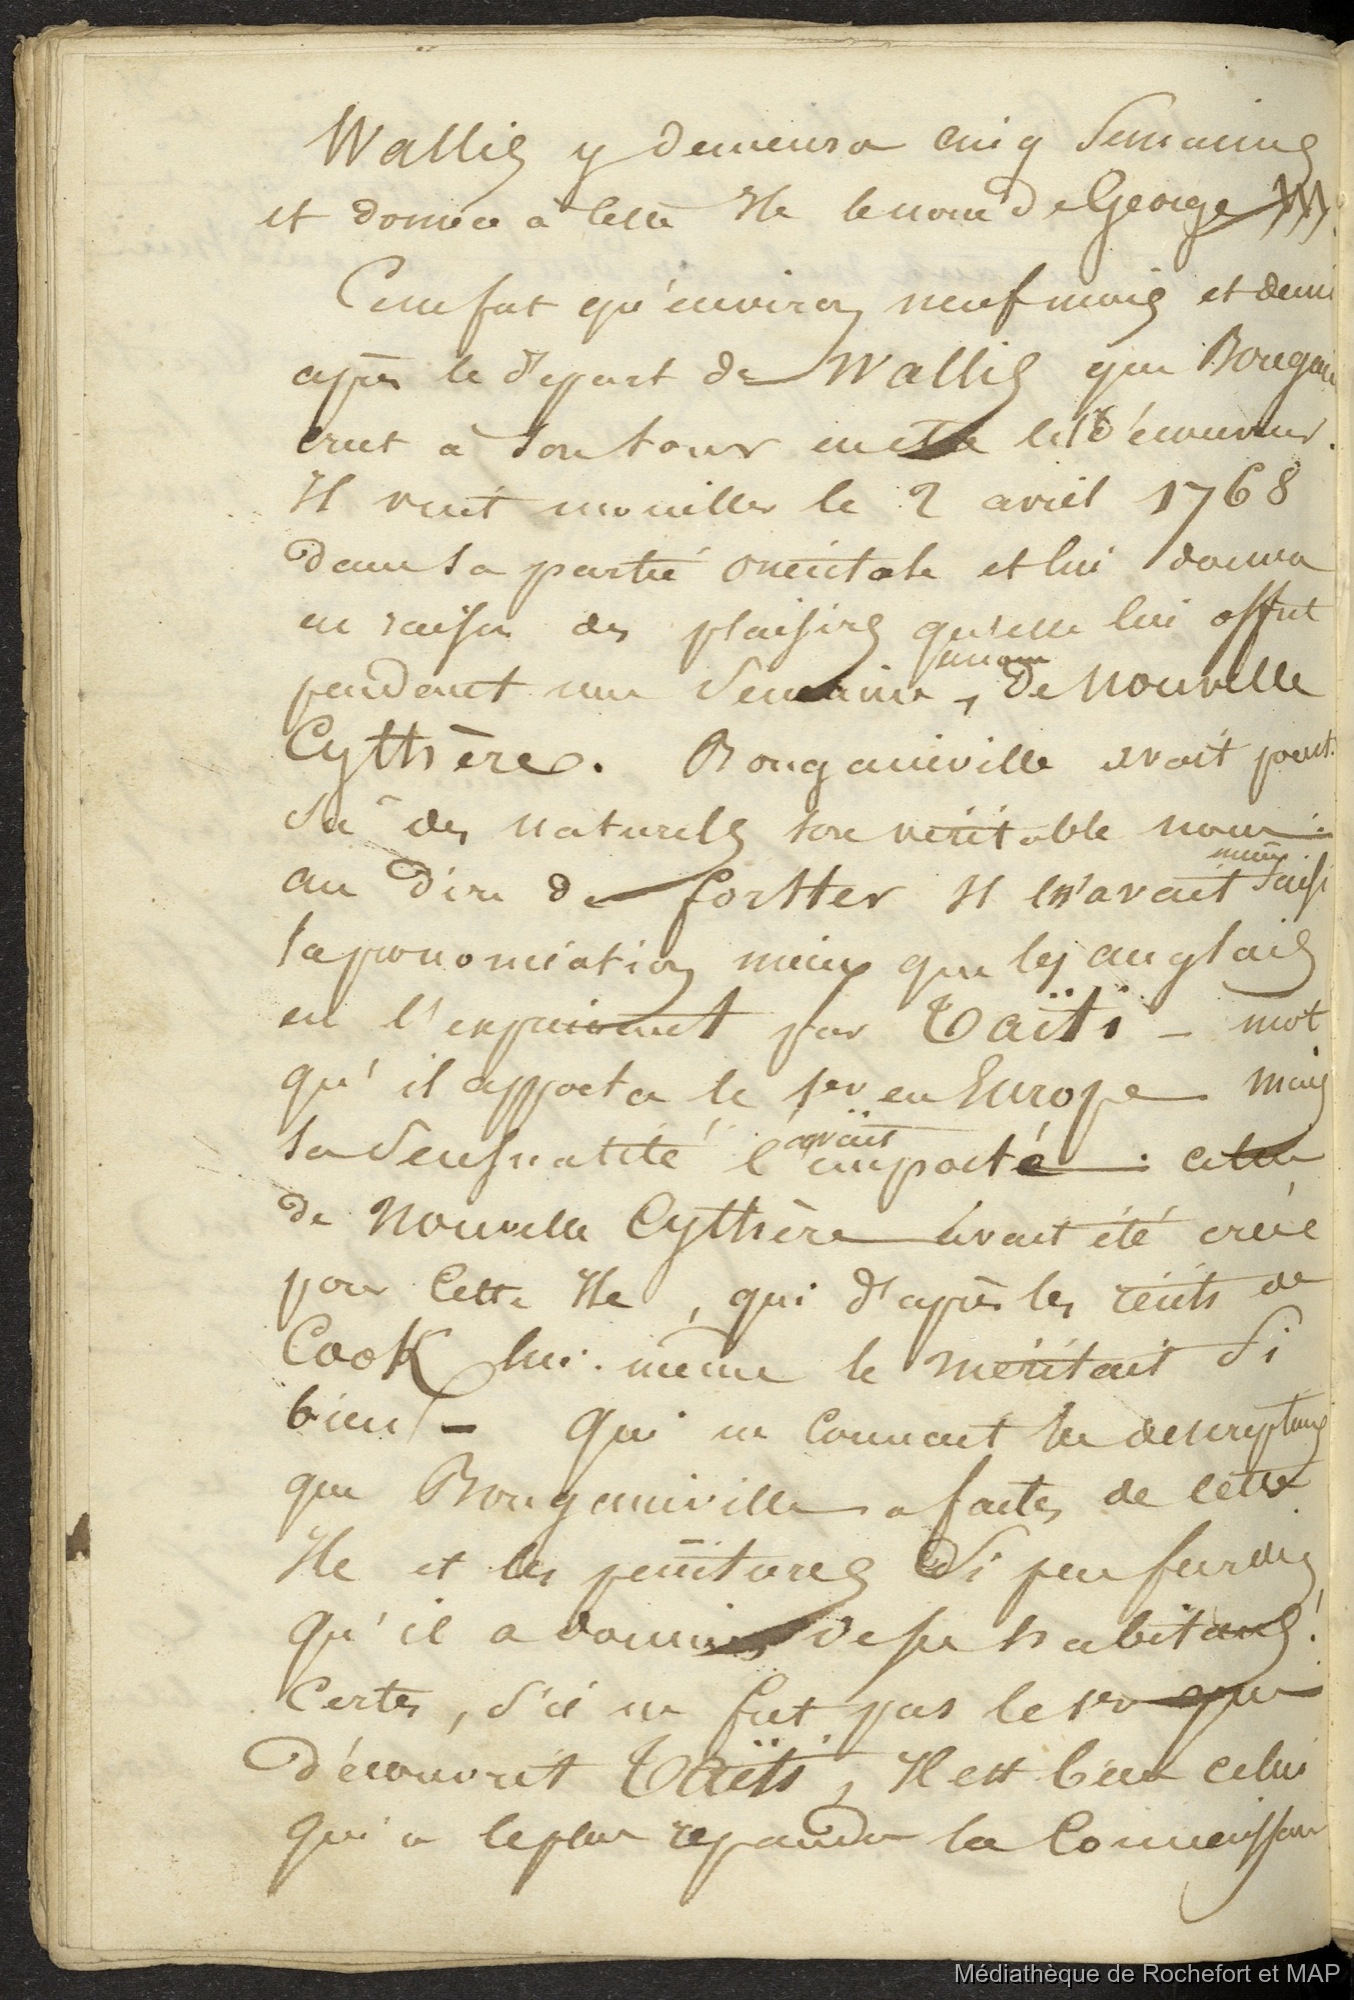 Wallis y demeura cinq semaines
et donna à cette Ile le nom de George III.
Ce ne fut qu'environ neuf mois et demi
après le départ de Wallis que Bougain
crut à son tour en être le découvreur.
Il vint mouiller le 2 avril 1768
dans sa partie orientale et lui donna
en raison des plaisirs qu'elle lui offrit
pendant une semaine, le nom de Nouvelle
Cythère. Bougainville avait pourt.
su des naturels son véritable nom.
au dire de forster Il en avait mieux saisi
la prononciation mieux que les anglais
en l'exprimant par Taïti - mot
qu'il apporta le 1er en Europe mais
sa sensualité l'avait emporté. celui
de Nouvelle Cythère avait été créé
pour cette Ile, qui d'après les récits de
Cook lui-même le méritait si
bien - qui ne connait les descriptions
que Bougainville a faites de cette
Ile et les peintures si peu fardées
qu'il a données de ses habitans!
Certes, s'il ne fut pas le 1er qui
découvrit Taïti, Il est bien celui
qui a le plus répandu la connaissan
Médiathèque de Rochefort et MAP